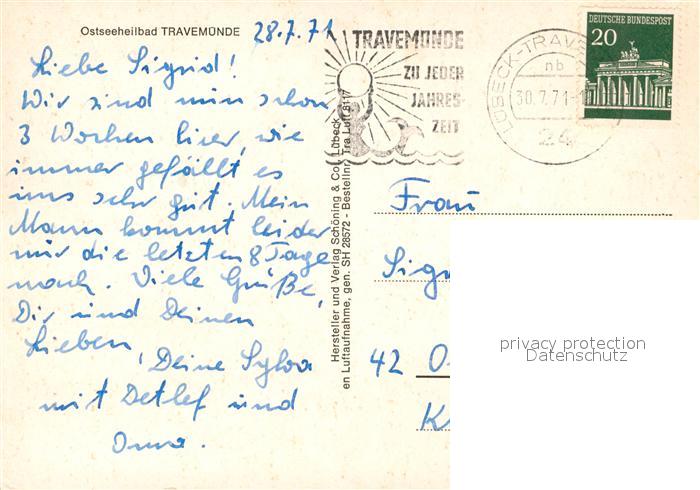 Ostseeheilbad TRAVEMÜNDE
28.7.71
Liebe Sigrid!
Wir sind nun schon
3 Wochen hier, wie
immer gefällt es
uns sehr gut. Mein
Mann kommt leider
nur die letzten 8 Tage
nach. Viele Grüße,
Dir und Deinen
Lieben,
Deine Sylva
mit Detlef und
Oma.
Hersteller und Verlag Schöning & Co., Lübeck
en Luftaufnahme, gen. SH 28572 - Bestellnr. Tra Luft 6117
TRAVEMÜNDE
ZU JEDER
JAHRES-
ZEIT
LÜBECK-TRAVE
nb
30.7.71-1
24
DEUTSCHE BUNDESPOST
20
Frau
Sig
42 O
K
privacy protection
Datenschutz